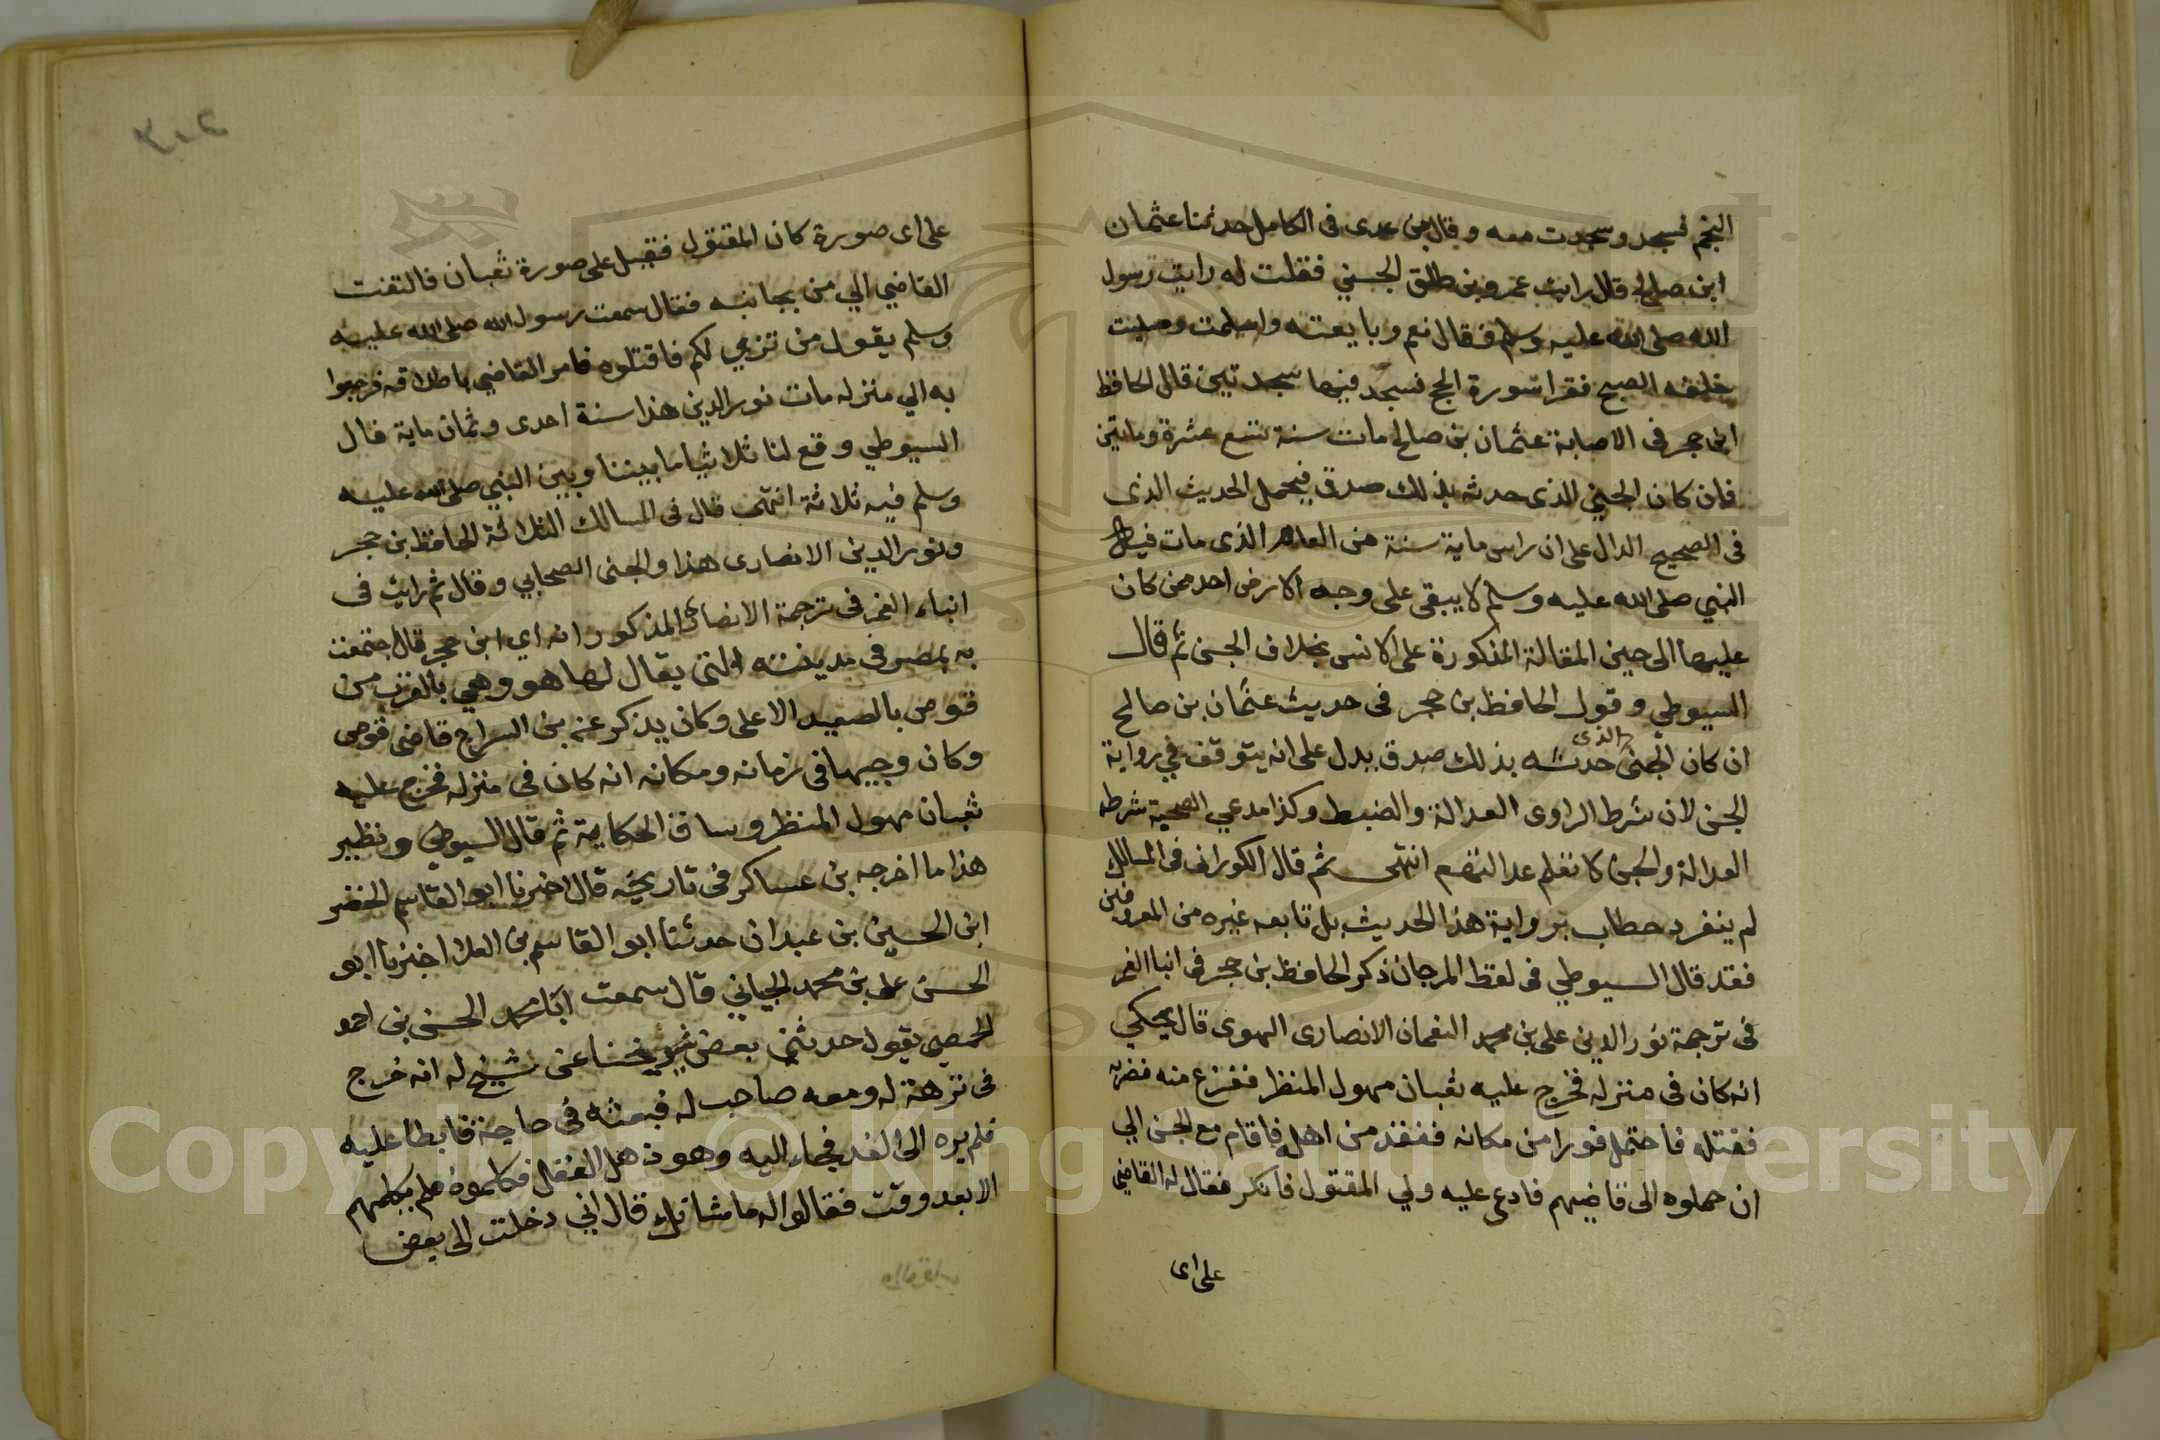 النجم فسجد وسجدت معه وقال بن عدى فى الكامل حدثنا عثمان
ابن صالح قال رايت عمرو بن طلق الجني فقلت له رايت رسول
الله صلى الله عليه وسلم فقال نعم وبايعته واسلمت وصليت
خلفه الصبح فقرا سورة الحج فسجد فيها سجدتين قال الحافظ
ابن حجر فى الاصابة عثمان بن صالح مات سنة تسع عشرة وماتين
فان كان الجني الذى حدثه بذلك صدق فيحمل الحديث الذى
فى الصحيح الدال على ان راس ماية سنة من العام الذى مات فيها
النبي صلى الله عليه وسلم لا يبقى على وجه الارض احد ممن كان
عليها الى حين المقالة المذكورة على الانس بخلاف الجن ثم قال
السيوطي وقول الحافظ بن حجر فى حديث عثمان بن صالح
ان كان الجنى الذى حدثه بذلك صدق يدل على انه يتوقف في رواية
الجن لان شرط الراوى العدالة والضبط وكذا مدعي الصحبة شرطه
العدالة والجن لا نعلم عدالتهم انتهى ثم قال الكورانى فى المسالك
لم ينفرد حطاب برواية هذا الحديث بل تابعه غيره من المعروفين
فقد قال السيوطي فى لقط المرجان ذكر الحافظ بن حجر فى انبا الغمر
فى ترجمة نور الدين على بن محمد النعمان الانصارى الهوى قال يحكي
انه كان فى منزله فخرج عليه ثعبان مهول المنظر ففزع منه فضربه
فقتله فاحتمل فورا من مكانه ففقد من اهله فاقام مع الجن الي
ان حملوه الى قاضيهم فادعى عليه ولي المقتول فانكر فقال له القاضي
على اى
على اى صورة كان المقتول فقيل على صورة ثعبان فالتفت
القاضي الي من بجانبه فقال سمعت رسول الله صلى الله عليه
وسلم يقول من تزيي لكم فاقتلوه فامر القاضي باطلاقه فرجعوا
به الي منزله مات نور الدين هذا سنة احدى وثمان ماية قال
السيوطي وقع لنا ثلاثيا ما بيننا وبين النبي صلى الله عليه
وسلم فيه ثلاثة انتهى قال فى المسالك الثلاثة الحافظ بن حجر
ونور الدين الانصارى هذا والجنى الصحابي وقال ثم رايت فى
انباء الغمر فى ترجمة الانصارى المذكور انه اي ابن حجر قال اجتمعت
به بمصر فى مدينته التى يقال لها هو وهي بالقرب من
قوص بالصعيد الاعلى وكان يذكر عنه بن السراج قاضى قوص
وكان وجيها فى زمانه ومكانه انه كان فى منزله فخرج عليه
ثعبان مهول المنظر وساق الحكاية ثم قال السيوطي ونظير
هذا ما اخرجه بن عساكر فى تاريخه قال اخبرنا ابو القاسم الخضر
ابن الحسين بن عبدان حدثنا ابو القاسم بن العلا اخبرنا ابو
الحسن على بن محمد الجياني قال سمعت ابا محمد الحسن بن احمد
الحمصي يقول حدثني بعض شيوخنا عن شيخ له انه خرج
فى نزهة له ومعه صاحب له فبعثه فى حاجة فابطا عليه
فلم يره الى الغد فجاء اليه وهو ذهل العقل فكلموه فلم يكلمهم
الا بعد وقت فقالوا له ما شانك قال اني دخلت الى بعض